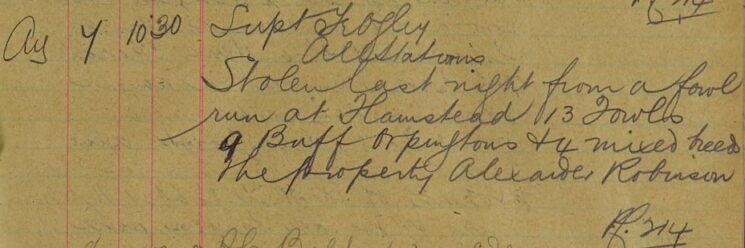 Aug 7 10.30 Supt Frogley
All Stations
Stolen last night from a fowl
run at Hamstead 13 Fowls
9 Buff Orpingtons & 4 mixed breeds
the property Alexander Robinson
214